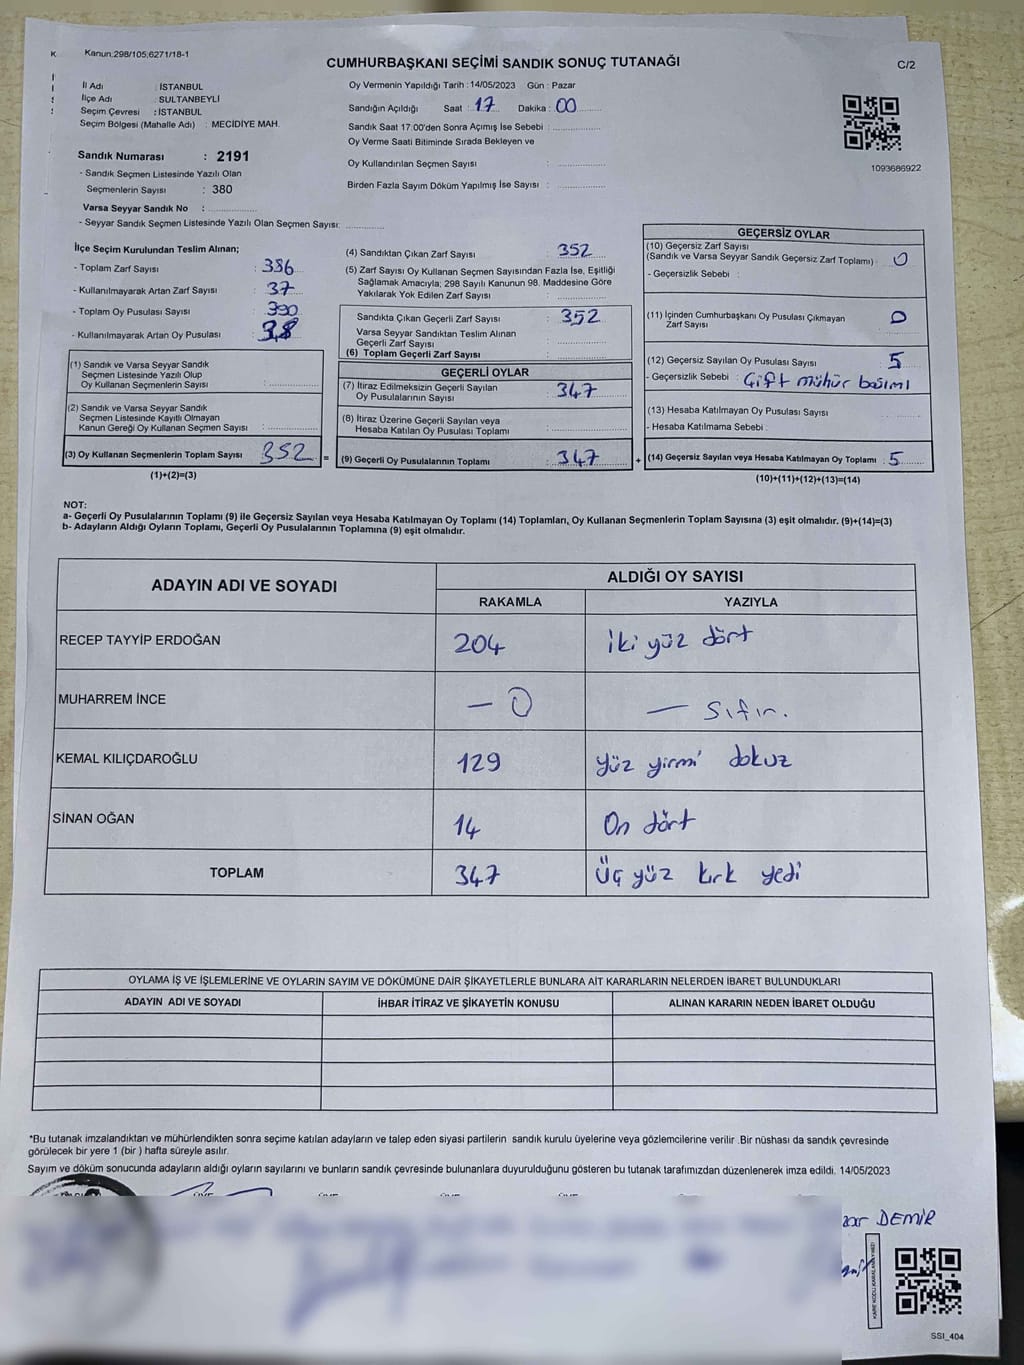 Kanun:298/105;6271/18-1
CUMHURBAŞKANI SEÇİMİ SANDIK SONUÇ TUTANAĞI
C/2
İl Adı : İSTANBUL
İlçe Adı : SULTANBEYLİ
Seçim Çevresi : İSTANBUL
Seçim Bölgesi (Mahalle Adı) : MECİDİYE MAH.
Sandık Numarası : 2191
- Sandık Seçmen Listesinde Yazılı Olan
Seçmenlerin Sayısı : 380
Varsa Seyyar Sandık No :
- Seyyar Sandık Seçmen Listesinde Yazılı Olan Seçmen Sayısı:
Oy Vermenin Yapıldığı Tarih : 14/05/2023 Gün : Pazar
Sandığın Açıldığı Saat : 17 Dakika : 00
Sandık Saat 17:00'den Sonra Açımış İse Sebebi :
Oy Verme Saati Bitiminde Sırada Bekleyen ve
Oy Kullandırılan Seçmen Sayısı :
Birden Fazla Sayım Döküm Yapılmış İse Sayısı :
1093686922
İlçe Seçim Kurulundan Teslim Alınan;
- Toplam Zarf Sayısı : 386
- Kullanılmayarak Artan Zarf Sayısı : 37
- Toplam Oy Pusulası Sayısı : 390
- Kullanılmayarak Artan Oy Pusulası : 38
(1) Sandık ve Varsa Seyyar Sandık
Seçmen Listesinde Yazılı Olup
Oy Kullanan Seçmenlerin Sayısı :
(2) Sandık ve Varsa Seyyar Sandık
Seçmen Listesinde Kayıtlı Olmayan
Kanun Gereği Oy Kullanan Seçmen Sayısı :
(3) Oy Kullanan Seçmenlerin Toplam Sayısı 352 =
(1)+(2)=(3)
(4) Sandıktan Çıkan Zarf Sayısı : 352
(5) Zarf Sayısı Oy Kullanan Seçmen Sayısından Fazla İse, Eşitliği
Sağlamak Amacıyla; 298 Sayılı Kanunun 98. Maddesine Göre
Yakılarak Yok Edilen Zarf Sayısı :
Sandıkta Çıkan Geçerli Zarf Sayısı : 352
Varsa Seyyar Sandıktan Teslim Alınan
Geçerli Zarf Sayısı :
(6) Toplam Geçerli Zarf Sayısı :
GEÇERLİ OYLAR
(7) İtiraz Edilmeksizin Geçerli Sayılan
Oy Pusulalarının Sayısı : 347
(8) İtiraz Üzerine Geçerli Sayılan veya
Hesaba Katılan Oy Pusulası Toplamı :
(9) Geçerli Oy Pusulalarının Toplamı : 347 +
GEÇERSİZ OYLAR
(10) Geçersiz Zarf Sayısı
(Sandık ve Varsa Seyyar Sandık Geçersiz Zarf Toplamı) : 0
- Geçersizlik Sebebi :
(11) İçinden Cumhurbaşkanı Oy Pusulası Çıkmayan
Zarf Sayısı : 0
(12) Geçersiz Sayılan Oy Pusulası Sayısı : 5
- Geçersizlik Sebebi : Çift mühür basımı
(13) Hesaba Katılmayan Oy Pusulası Sayısı :
- Hesaba Katılmama Sebebi :
(14) Geçersiz Sayılan veya Hesaba Katılmayan Oy Toplamı : 5
(10)+(11)+(12)+(13)=(14)
NOT:
a- Geçerli Oy Pusulalarının Toplamı (9) ile Geçersiz Sayılan veya Hesaba Katılmayan Oy Toplamı (14) Toplamları, Oy Kullanan Seçmenlerin Toplam Sayısına (3) eşit olmalıdır. (9)+(14)=(3)
b- Adayların Aldığı Oyların Toplamı, Geçerli Oy Pusulalarının Toplamına (9) eşit olmalıdır.
ADAYIN ADI VE SOYADI ALDIĞI OY SAYISI
RAKAMLA YAZIYLA
RECEP TAYYİP ERDOĞAN 204 iki yüz dört
MUHARREM İNCE — 0 — Sıfır.
KEMAL KILIÇDAROĞLU 129 yüz yirmi dokuz
SİNAN OĞAN 14 On dört
TOPLAM 347 Üç yüz kırk yedi
OYLAMA İŞ VE İŞLEMLERİNE VE OYLARIN SAYIM VE DÖKÜMÜNE DAİR ŞİKAYETLERLE BUNLARA AİT KARARLARIN NELERDEN İBARET BULUNDUKLARI
ADAYIN ADI VE SOYADI İHBAR İTİRAZ VE ŞİKAYETİN KONUSU ALINAN KARARIN NEDEN İBARET OLDUĞU
*Bu tutanak imzalandıktan ve mühürlendikten sonra seçime katılan adayların ve talep eden siyasi partilerin sandık kurulu üyelerine veya gözlemcilerine verilir .Bir nüshası da sandık çevresinde
görülecek bir yere 1 (bir ) hafta süreyle asılır.
Sayım ve döküm sonucunda adayların aldığı oyların sayılarını ve bunların sandık çevresinde bulunanlara duyurulduğunu gösteren bu tutanak tarafımızdan düzenlenerek imza edildi. 14/05/2023
DEMİR
SSI_404